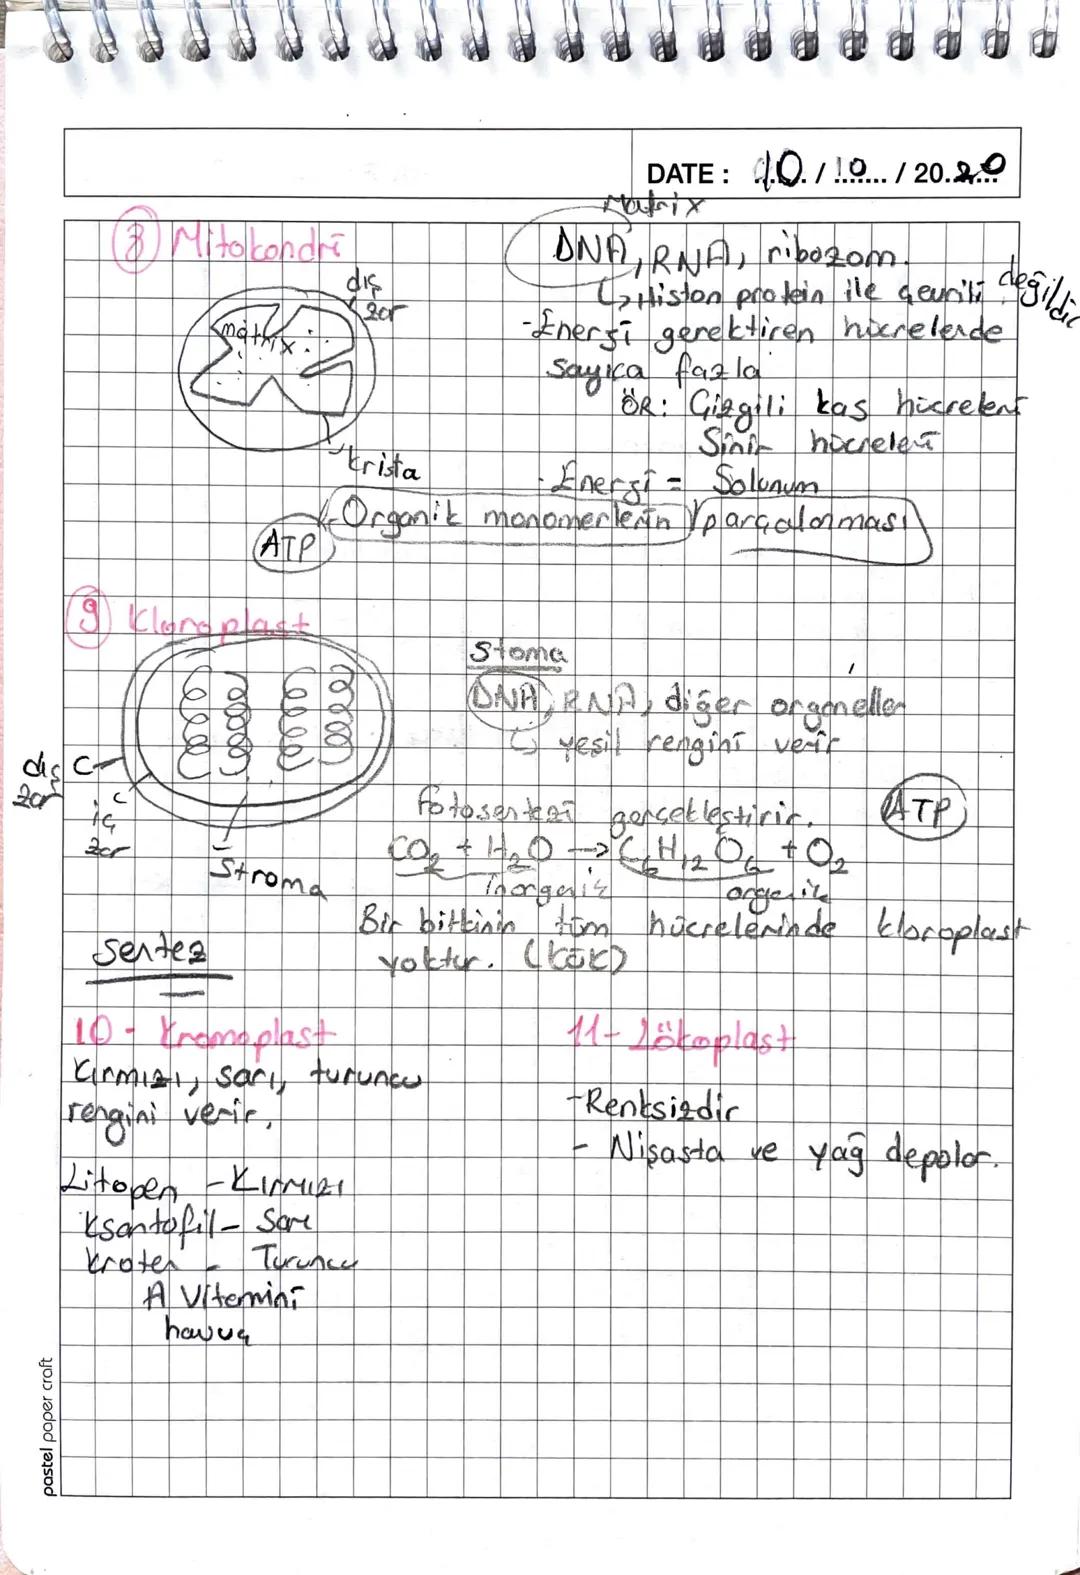 DATE : 10 / 10 / 2020
Matrix
8 Mitokondri
DNA, RNA, ribozom.
dış zar
matrix
krista
Histon protein ile çevrili değildir
- Enerji gerektiren hücrelerde
sayıca fazla
ÖR: Çizgili kas hücreleri
Sinir hücreleri
- Enerji = Solunum
Organik monomerlerin parçalanması
ATP
9 Kloroplast
dış zar
iç zar
Stroma
Stoma
DNA, RNA, diğer organeller
yeşil rengini verir
Fotosentezi gerçekleştirir.
ATP
CO2 + H2O → C6H12O6 + O2
inorganik organik
Bir bitkinin tüm hücrelerinde kloroplast
yoktur. (kök)
Sentez
10 - Kromoplast
Kırmızı, sarı, turuncu
rengini verir.
Litopen - Kırmızı
Ksantofil - Sarı
Kroten - Turuncu
A Vitemini
havuç
11 - Lökoplast
- Renksizdir
- Nişasta ve yağ depolar.
pastel paper craft